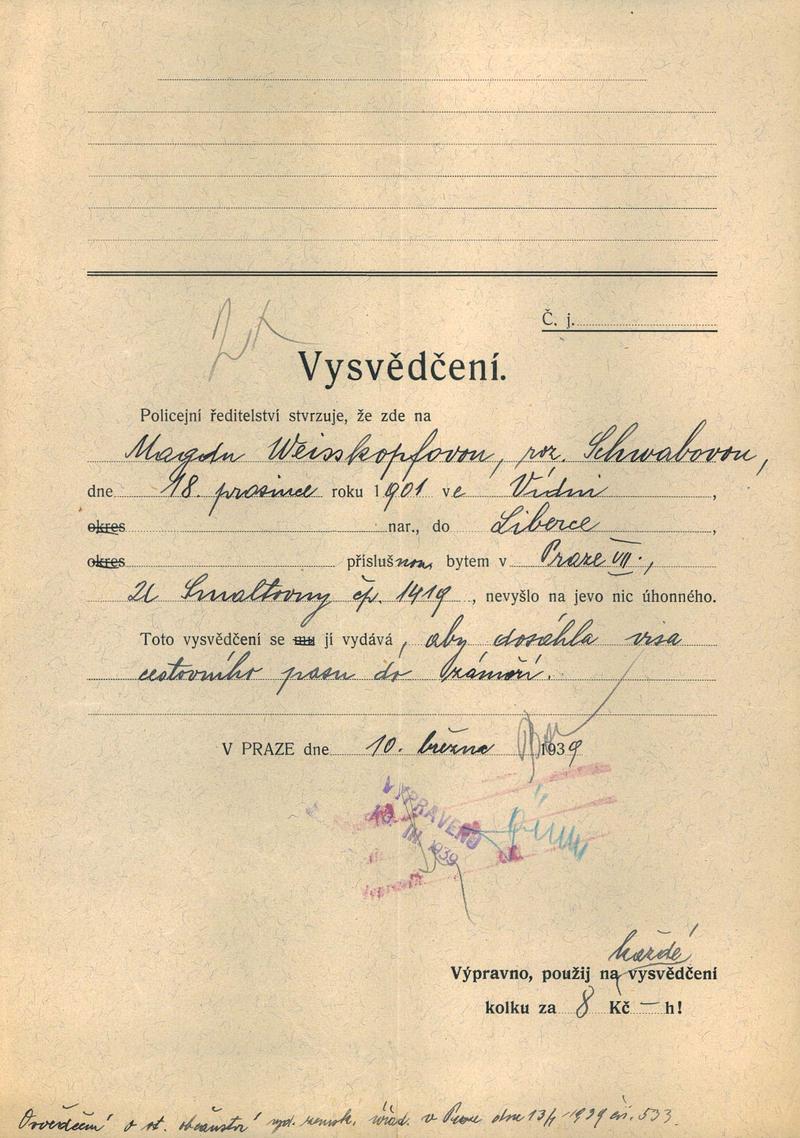 Č. j.
Vysvědčení.
Policejní ředitelství stvrzuje, že zde na
Magdu Weisskopfovou, roz. Schwabovou,
dne 18. prosince roku 1901 ve Vídni,
okres nar., do Liberce,
okres příslušnou, bytem v Praze VII.,
U Smaltovny čp. 1419, nevyšlo na jevo nic úhonného.
Toto vysvědčení se mu jí vydává, aby dosáhla visa
cestovního pasu do zámoří.
V PRAZE dne 10. března 1939
VYPRAVENO
10. III. 1939
každé
Výpravno, použij na vysvědčení
kolku za 8 Kč — h!
Osvědčení o st. občanství vyd. zemsk. úřad. v Praze dne 13/1 1939 čís. 533.